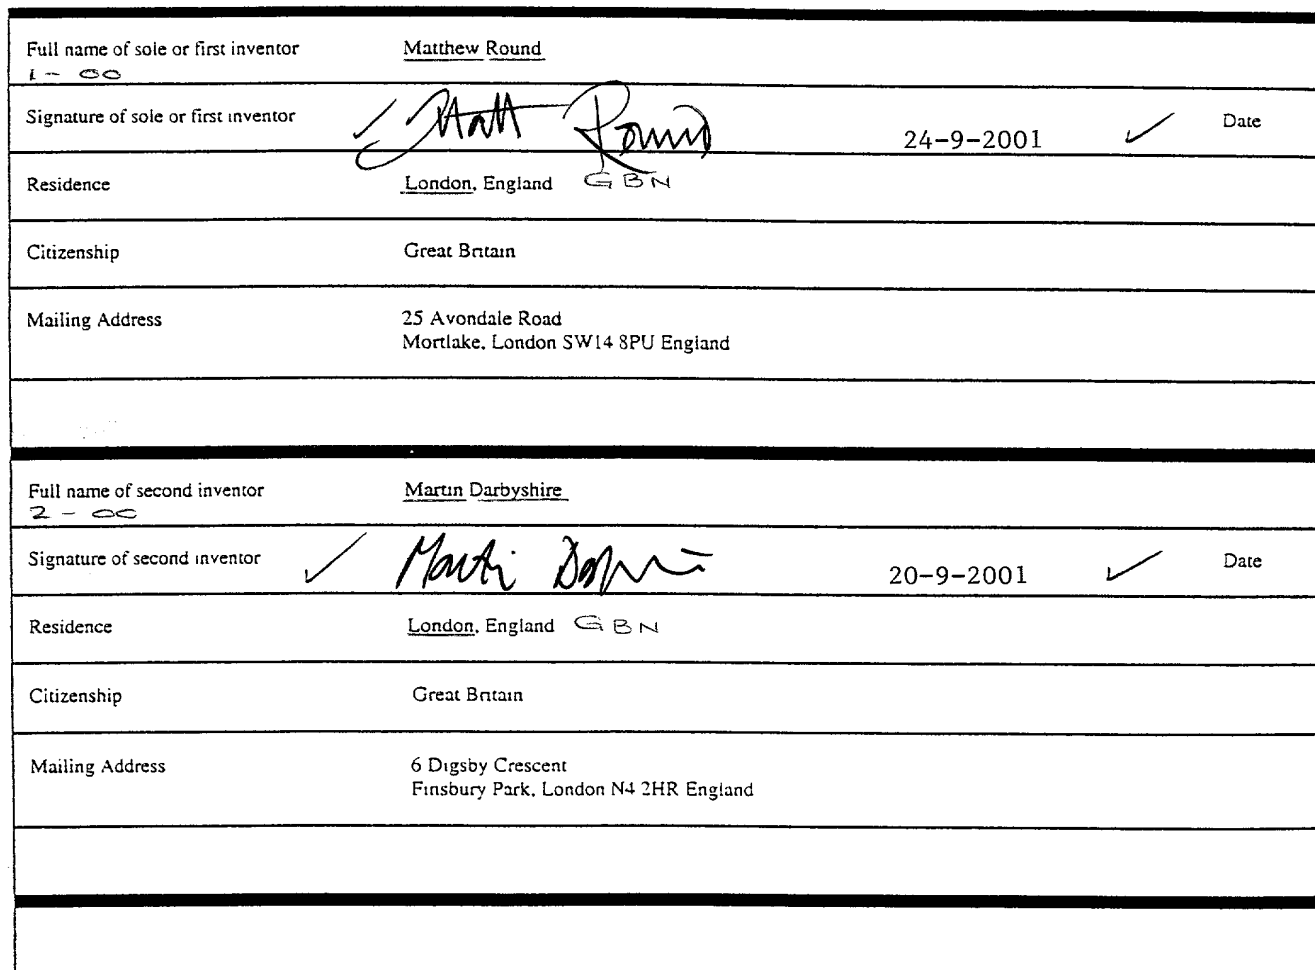 Full name of sole or first inventor Matthew Round
1 - 00
Signature of sole or first inventor Matt Round 24-9-2001 Date
Residence London, England GBN
Citizenship Great Britain
Mailing Address 25 Avondale Road
Mortlake, London SW14 8PU England
Full name of second inventor Martin Darbyshire
2 - 00
Signature of second inventor Martin 20-9-2001 Date
Residence London, England GBN
Citizenship Great Britain
Mailing Address 6 Digsby Crescent
Finsbury Park, London N4 2HR England